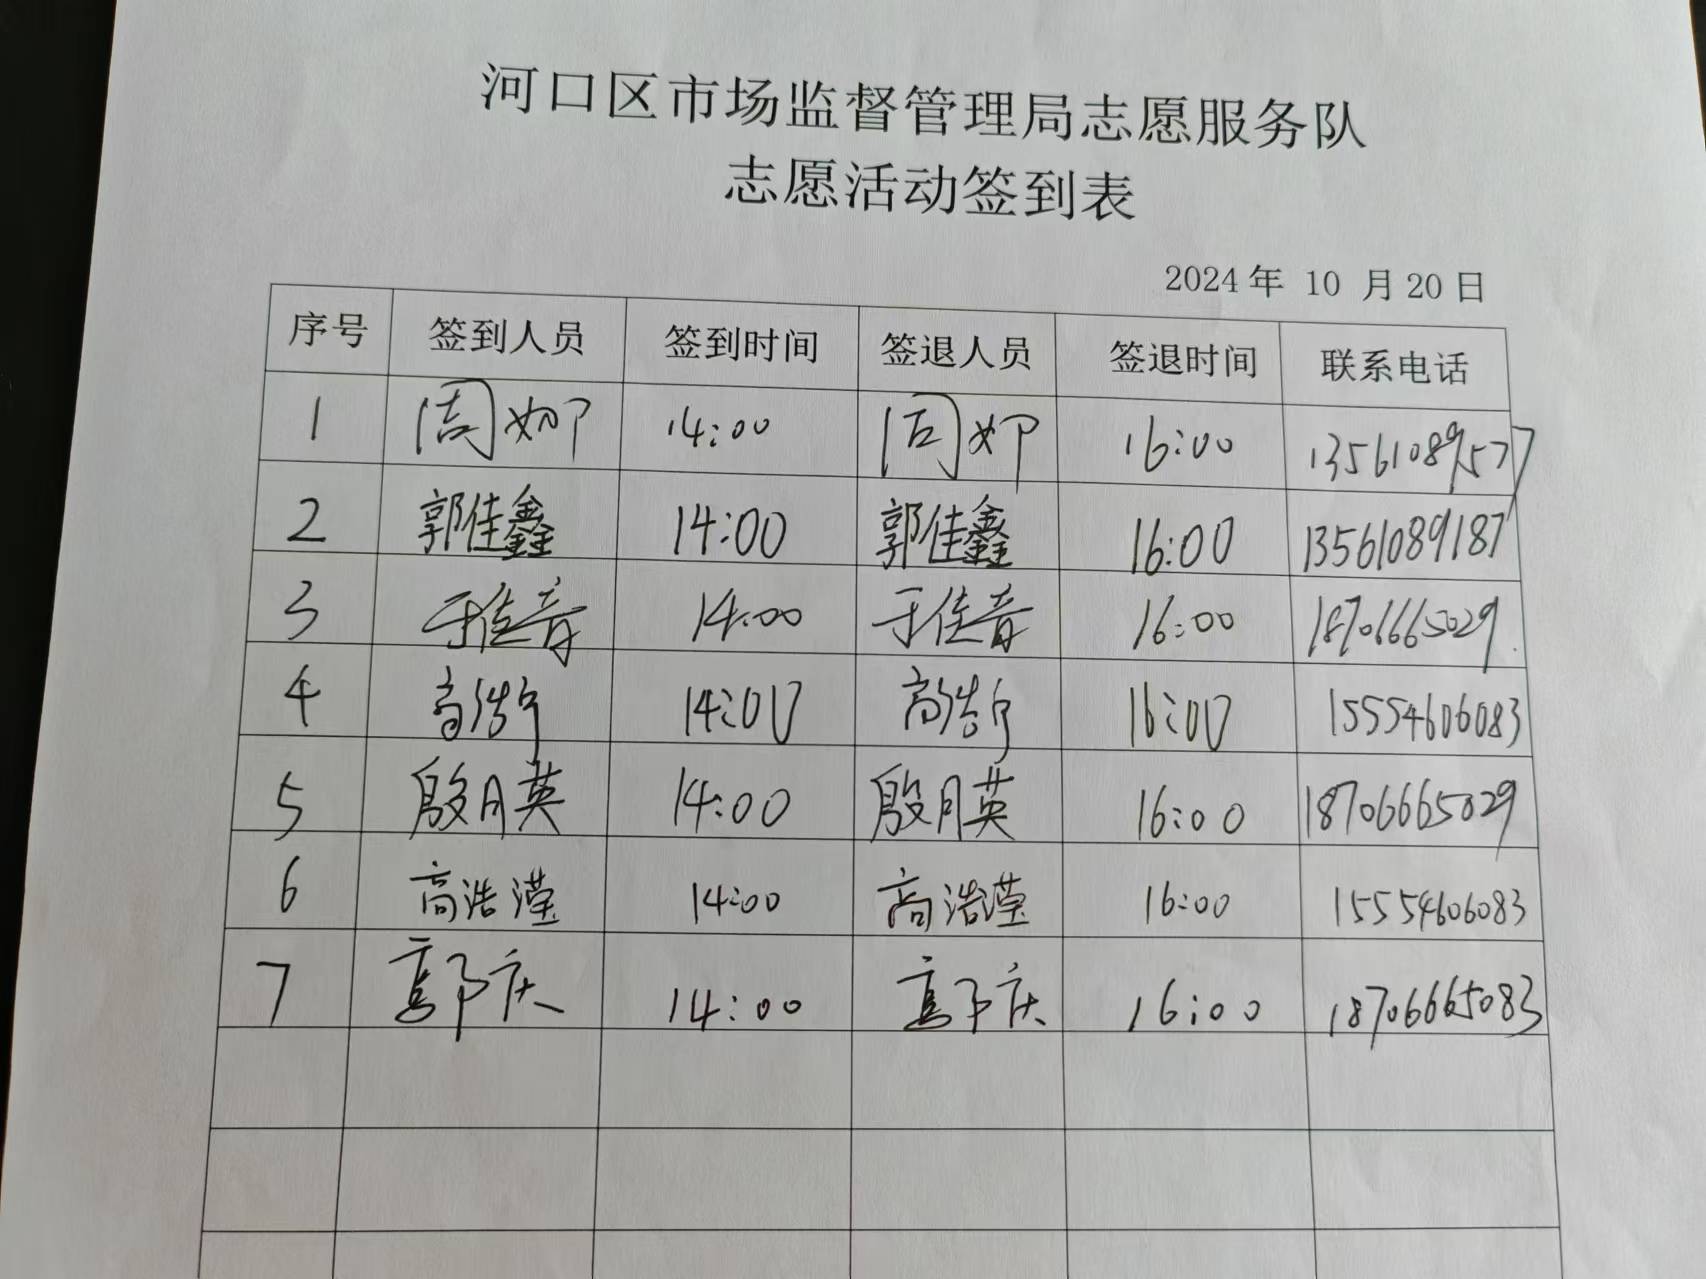 河口区市场监督管理局志愿服务队
志愿活动签到表
2024年 10 月20日
序号 签到人员 签到时间 签退人员 签退时间 联系电话
1 周如 14:00 周如 16:00 13561089577
2 郭佳鑫 14:00 郭佳鑫 16:00 13561089187
3 于佳音 14:00 于佳音 16:00 18706665029
4 高浩宁 14:00 高浩宁 16:00 15554606083
5 殷月英 14:00 殷月英 16:00 18706665029
6 高浩滢 14:00 高浩滢 16:00 15554606083
7 庆 14:00 庆 16:00 18706665083